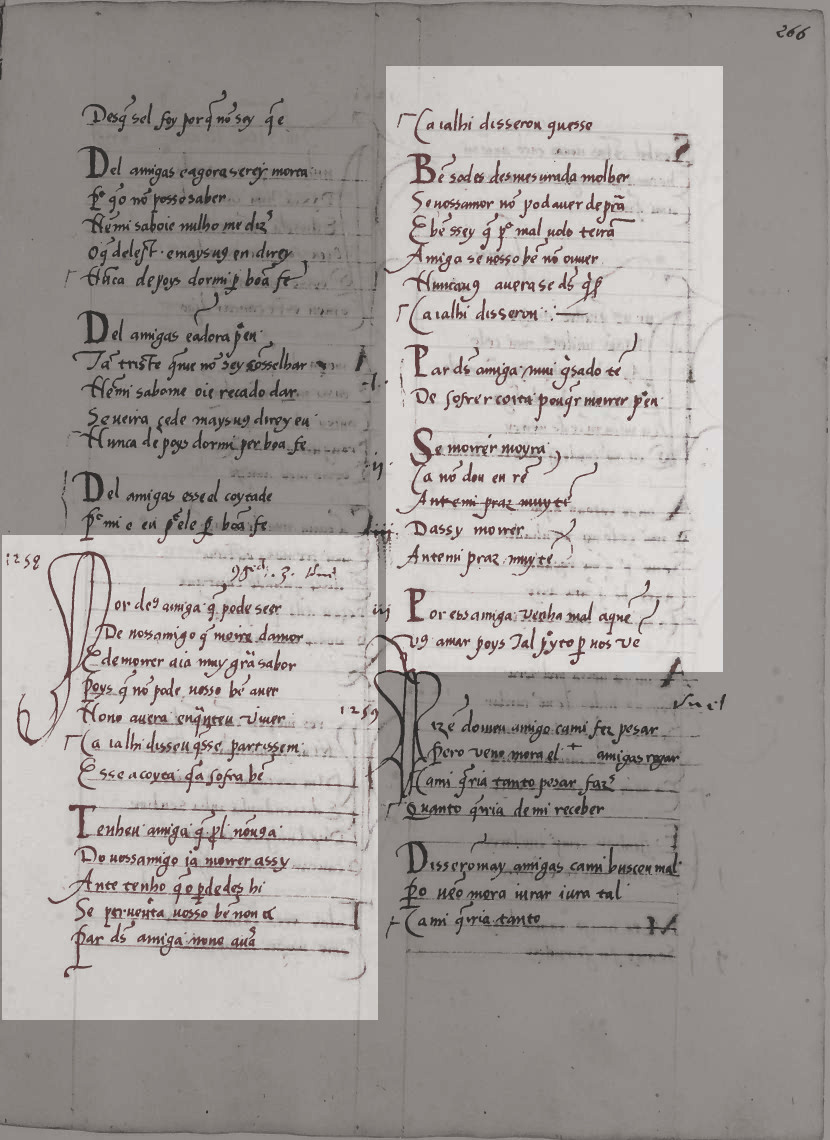 266
Desq̄ sel foy porq̄ nō sey q̄ e
Del amigas e agora serey morta
q̄o nō posso saber
Nē mi saboie nulho me diz
Oq̄ delest. e mays uꝯ en direy
Nūca depoys dormi ꝑ boā fe
Del amigas e adora pēn
Ja triste q̄ue nō sey cosselhar
Nē mi sabome oie recado dar
Se ueira cede mays uꝯ direy eu
Nunca depoys dormi per boa fe
Del amigas esse el coytade
mi e eu ele ꝑ boā fe
1258
Por deꝯ amiga q̄ pode seer
De uosamigo q̄ moire damor
E de morrer aia muy grā sabor
Poys q̄ nō pode uosso bē auer
Nono auera enquāteu viuer
Ca ialhi disseu q̄sse partissem
Esse a coyta q̄a sofra bē
Tenheu amiga q̄ pl nouga
Do uossamigo ja morrer assy
Ante tenho q̄o ꝑdedes hi
Se peruenta uosso bē non a
Par ds̄ amiga nono auā
Ca ialhi disseron quesse
Bē sodes desmesurada molher
Se uossamor nō pod auer de prā
E bē ssey q̄ mal uolo teira
Amiga se uosso bē nō ouuer
Nuncauꝯ auera se ds̄
Ca ialhi disseron
Par ds̄ amiga mui gʳsado tē
De sofrer coita pouqʳ morrer pen
Se morrer moyra
Ca nō dou en rē
Antemi praz muytē
ij
iij
Dassy morrer
Antemi praz muytē
iij
Por essamiga venha mal aquē
uꝯ amar poys Tal pʳyto ꝑ uos ue
1259
Dizē do meu amigo cami fez pesar
Pero veno mora el + amigas rogar
Cami q̄ria tanto pesar fazᵉ
Quanto q̄ria de mi receber
Disseromay amigas cami buscou mal
ꝑo ueō mora iurar iura tal
Cami q̄ria tanto